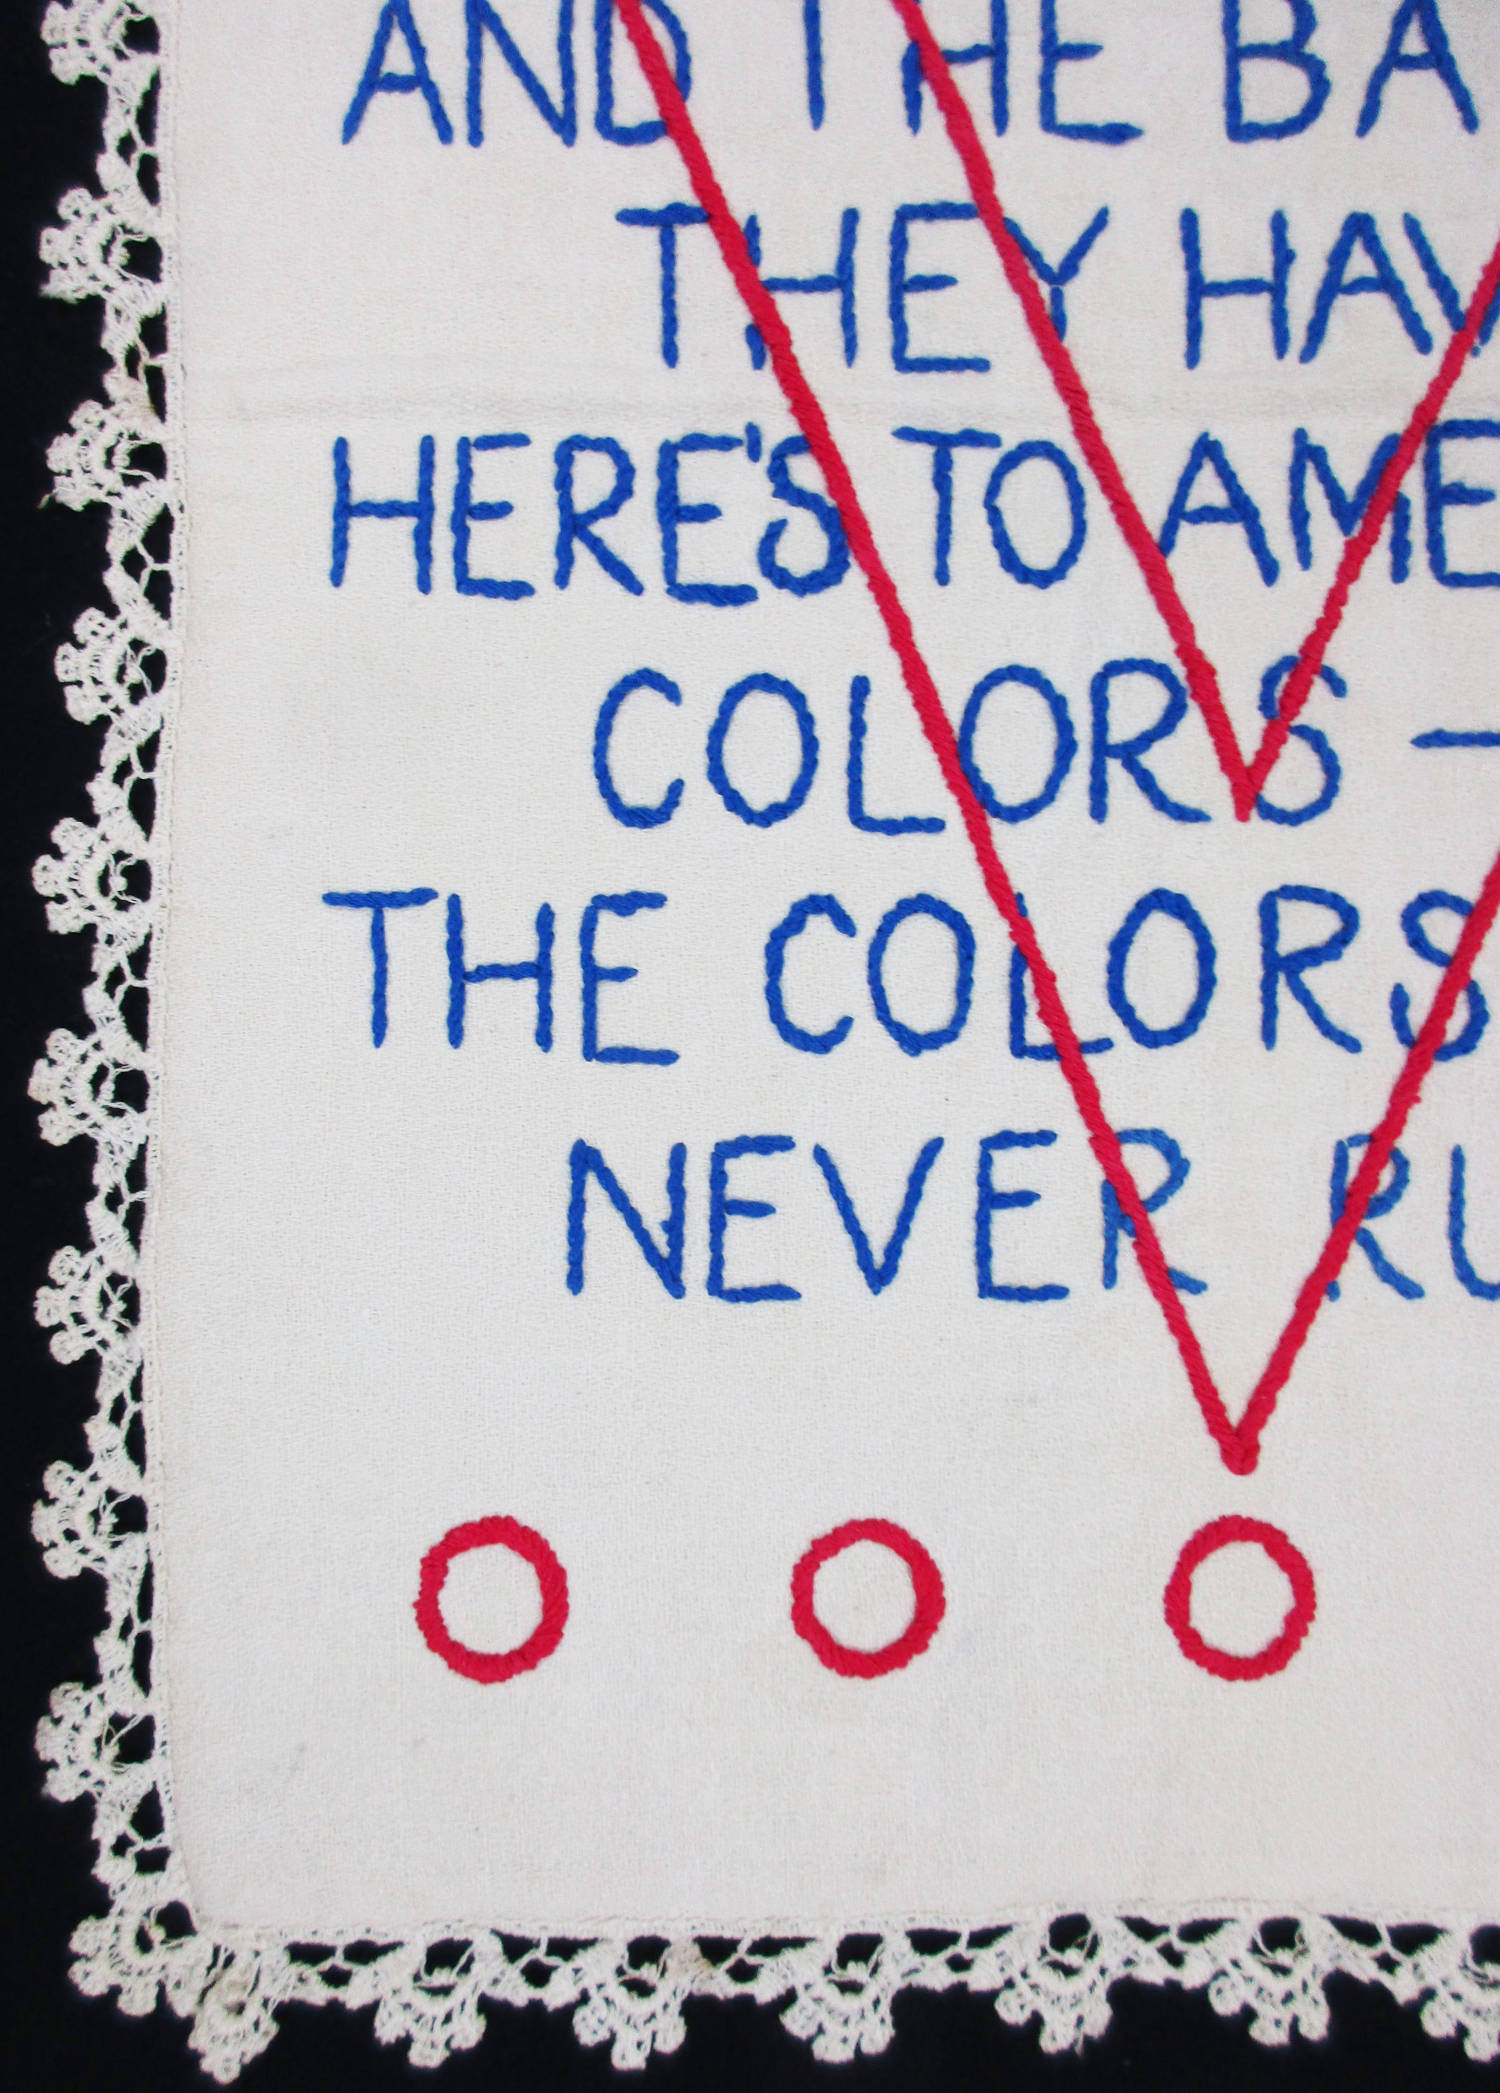 AND THE BA
THEY HAV
HERE'S TO AME
COLORS —
THE COLORS
NEVER RU